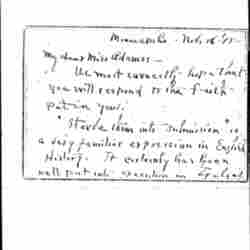 Minneapolis - Nov. 16 '15
My dear Miss Adams -
We most earnestly hope that
you will respond to the faith
put in you.
"Starve them into submission" is
a very familiar expression in English
History. It certainly has been
well put into execution in